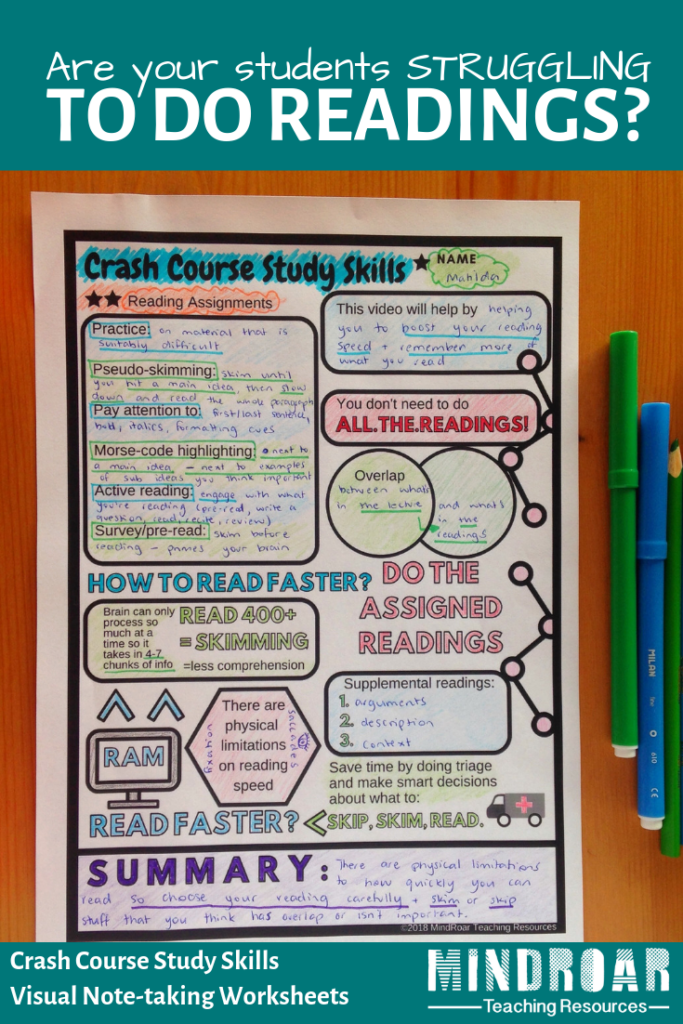 Are your students STRUGGLING
TO DO READINGS?
Crash Course Study Skills
NAME
Matilda
Reading Assignments
Practice: on material that is
suitably difficult
Pseudo-skimming: skim until
you hit a main idea, then slow
down and read the whole paragraph
Pay attention to: first/last sentence,
bold, italics, formatting cues
Morse-code highlighting: • next to
a main idea – next to examples
of sub ideas you think important
Active reading: engage with what
you're reading (pre-read, write a
question, read, recite, review)
Survey/pre-read: skim before
reading – primes your brain
This video will help by helping
you to boost your reading
speed + remember more of
what you read
You don't need to do
ALL.THE.READINGS!
Overlap
between what's
in the lectue
and what's
in the
readings
HOW TO READ FASTER?
DO THE
ASSIGNED
READINGS
Brain can only
process so
much at a
time so it
takes in 4-7
chunks of info
READ 400+
= SKIMMING
=less comprehension
RAM
There are
physical
limitations
on reading
speed
fixation
saccades
Supplemental readings:
1. arguments
2. description
3. context
Save time by doing triage
and make smart decisions
about what to:
READ FASTER?
< SKIP, SKIM, READ.
SUMMARY: There are physical limitations
to how quickly you can
read so choose your reading carefully + skim or skip
stuff that you think has overlap or isn't important.
©2018 MindRoar Teaching Resources
MILAN
610
CE
Crash Course Study Skills
Visual Note-taking Worksheets
MINDROAR
Teaching Resources